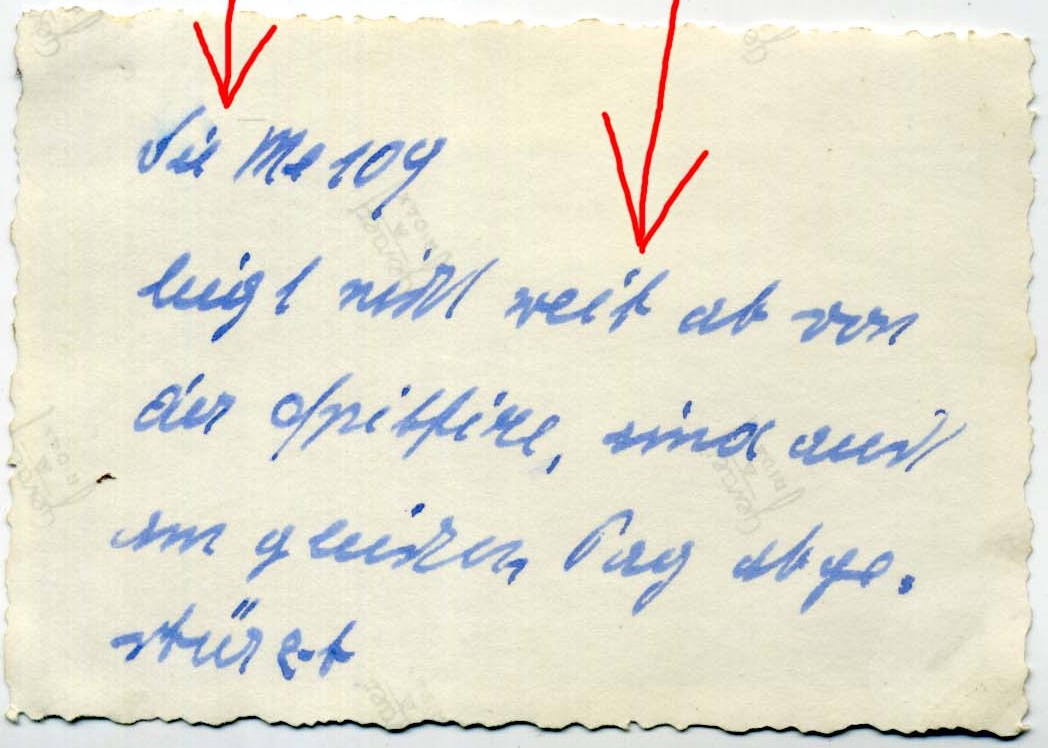 Die Me 109
leigt nicht weit ab von
der Spitfire, sind auch
am gleichen Tag abge-
stürzt